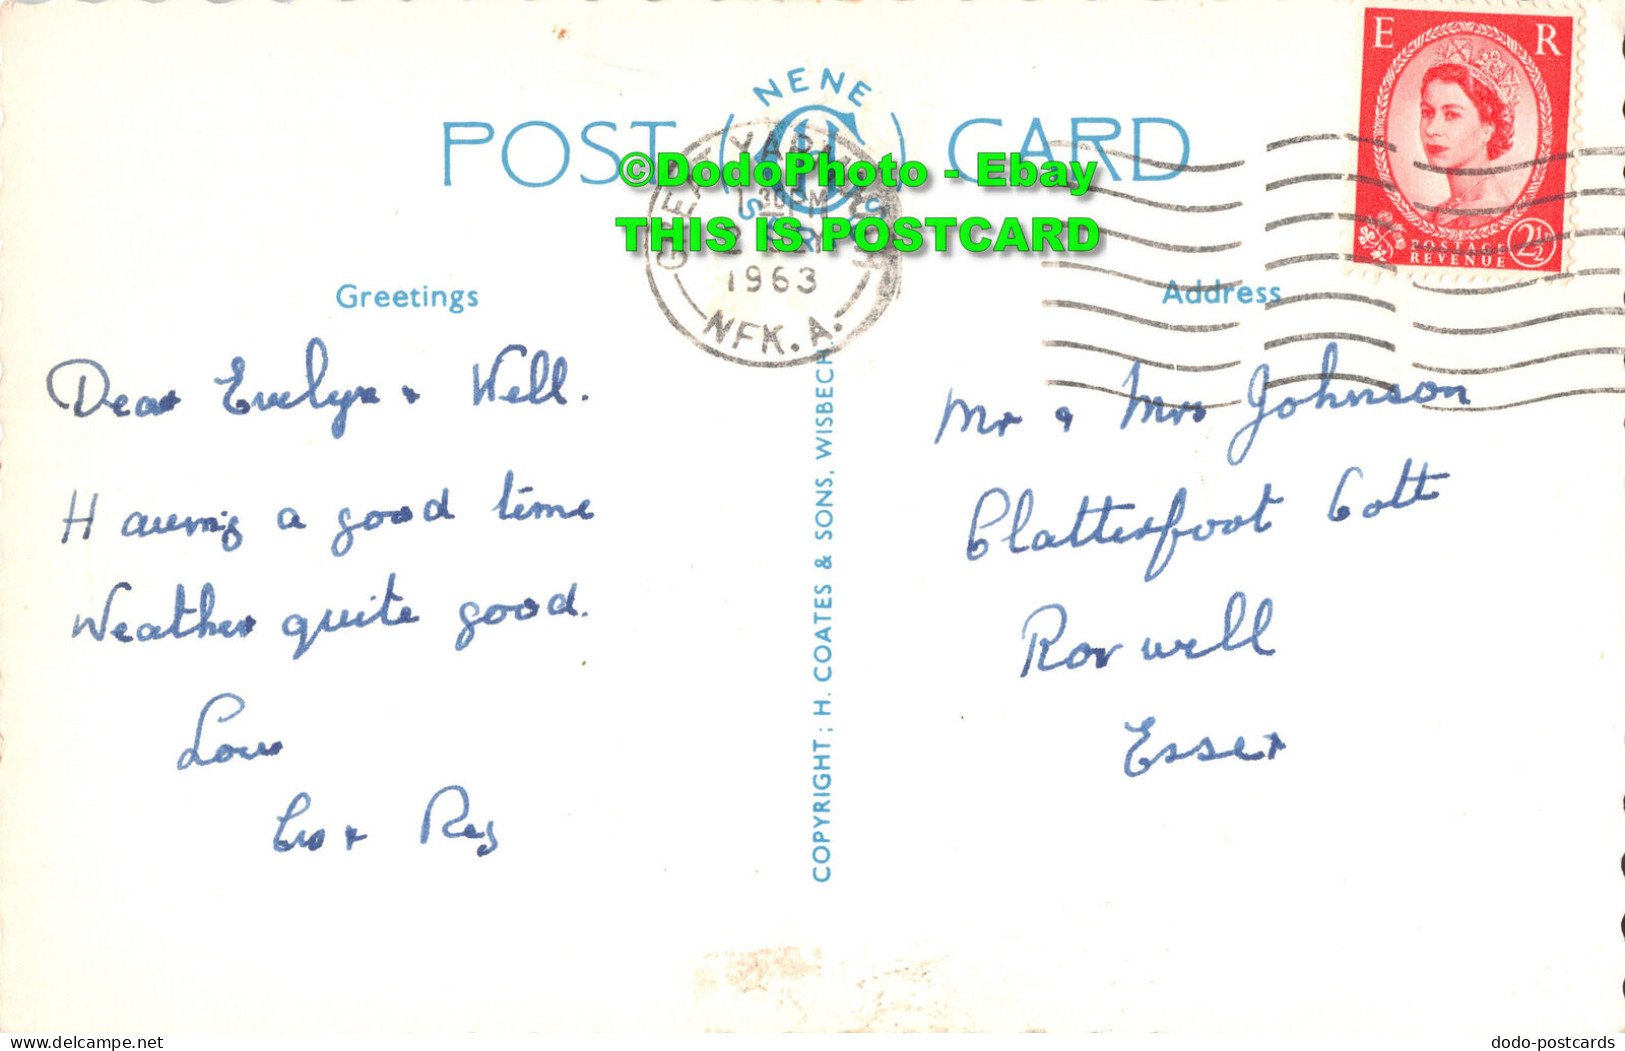 E R
NENE
POST CARD
©DodoPhoto - Ebay
THIS IS POSTCARD
GREAT YARMOUTH
30PM
1963
NFK. A.
POSTAGE
REVENUE 2½
Greetings
Address
Dear Evelyn + Well.
Having a good time
Weather quite good.
Love
+ Reg
COPYRIGHT; H. COATES & SONS, WISBECH
Mr & Mrs Johnson
Clatterfoot Cott
Roxwell
Essex
delcampe.net
dodo-postcards